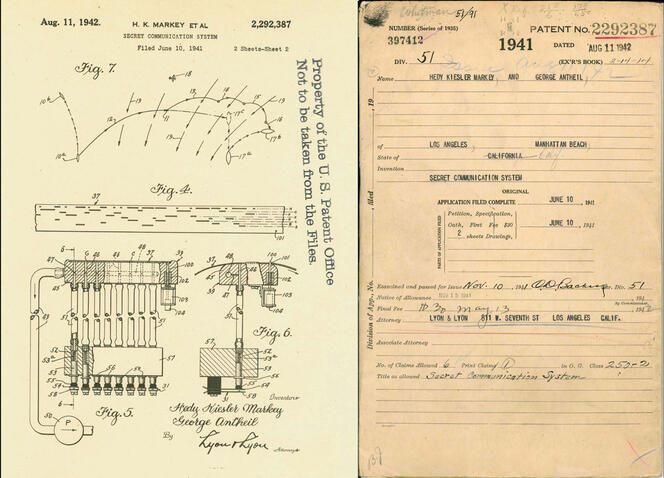 Aug. 11, 1942.
H. K. MARKEY ET AL
2,292,387
SECRET COMMUNICATION SYSTEM
Filed June 10, 1941
2 Sheets-Sheet 2
Fig. 7.
Fig. 4.
Fig. 6.
Fig. 5.
Property of the U. S. Patent Office
Not to be taken from the Files.
Inventors
Hedy Kiesler Markey
George Antheil
By
Lyon & Lyon
Attorneys
NUMBER (Series of 1935)
397412
1941
PATENT NO. 2292387
DATED AUG 11 1942
DIV. 51
(EX'R'S BOOK)
Name HEDY KIESLER MARKEY, AND GEORGE ANTHEIL,
of LOS ANGELES, MANHATTAN BEACH,
State of CALIFORNIA
Invention
SECRET COMMUNICATION SYSTEM
ORIGINAL
APPLICATION FILED COMPLETE JUNE 10, 1941
PARTS OF APPLICATION FILED
Petition, Specification,
Oath, First Fee $30 JUNE 10, 1941
2 sheets Drawings,
Examined and passed for Issue Nov. 10 1941 Div. 51
Notice of Allowance NOV 13 1941
By Commissioner.
Final Fee May 13 1942
Attorney LYON & LYON 811 W. SEVENTH ST LOS ANGELES CALIF.
Associate Attorney
No. of Claims Allowed 6 Print Claim 1 in O. G. Class 250-2
Title as allowed Secret Communication System
Division of App., No. filed 19